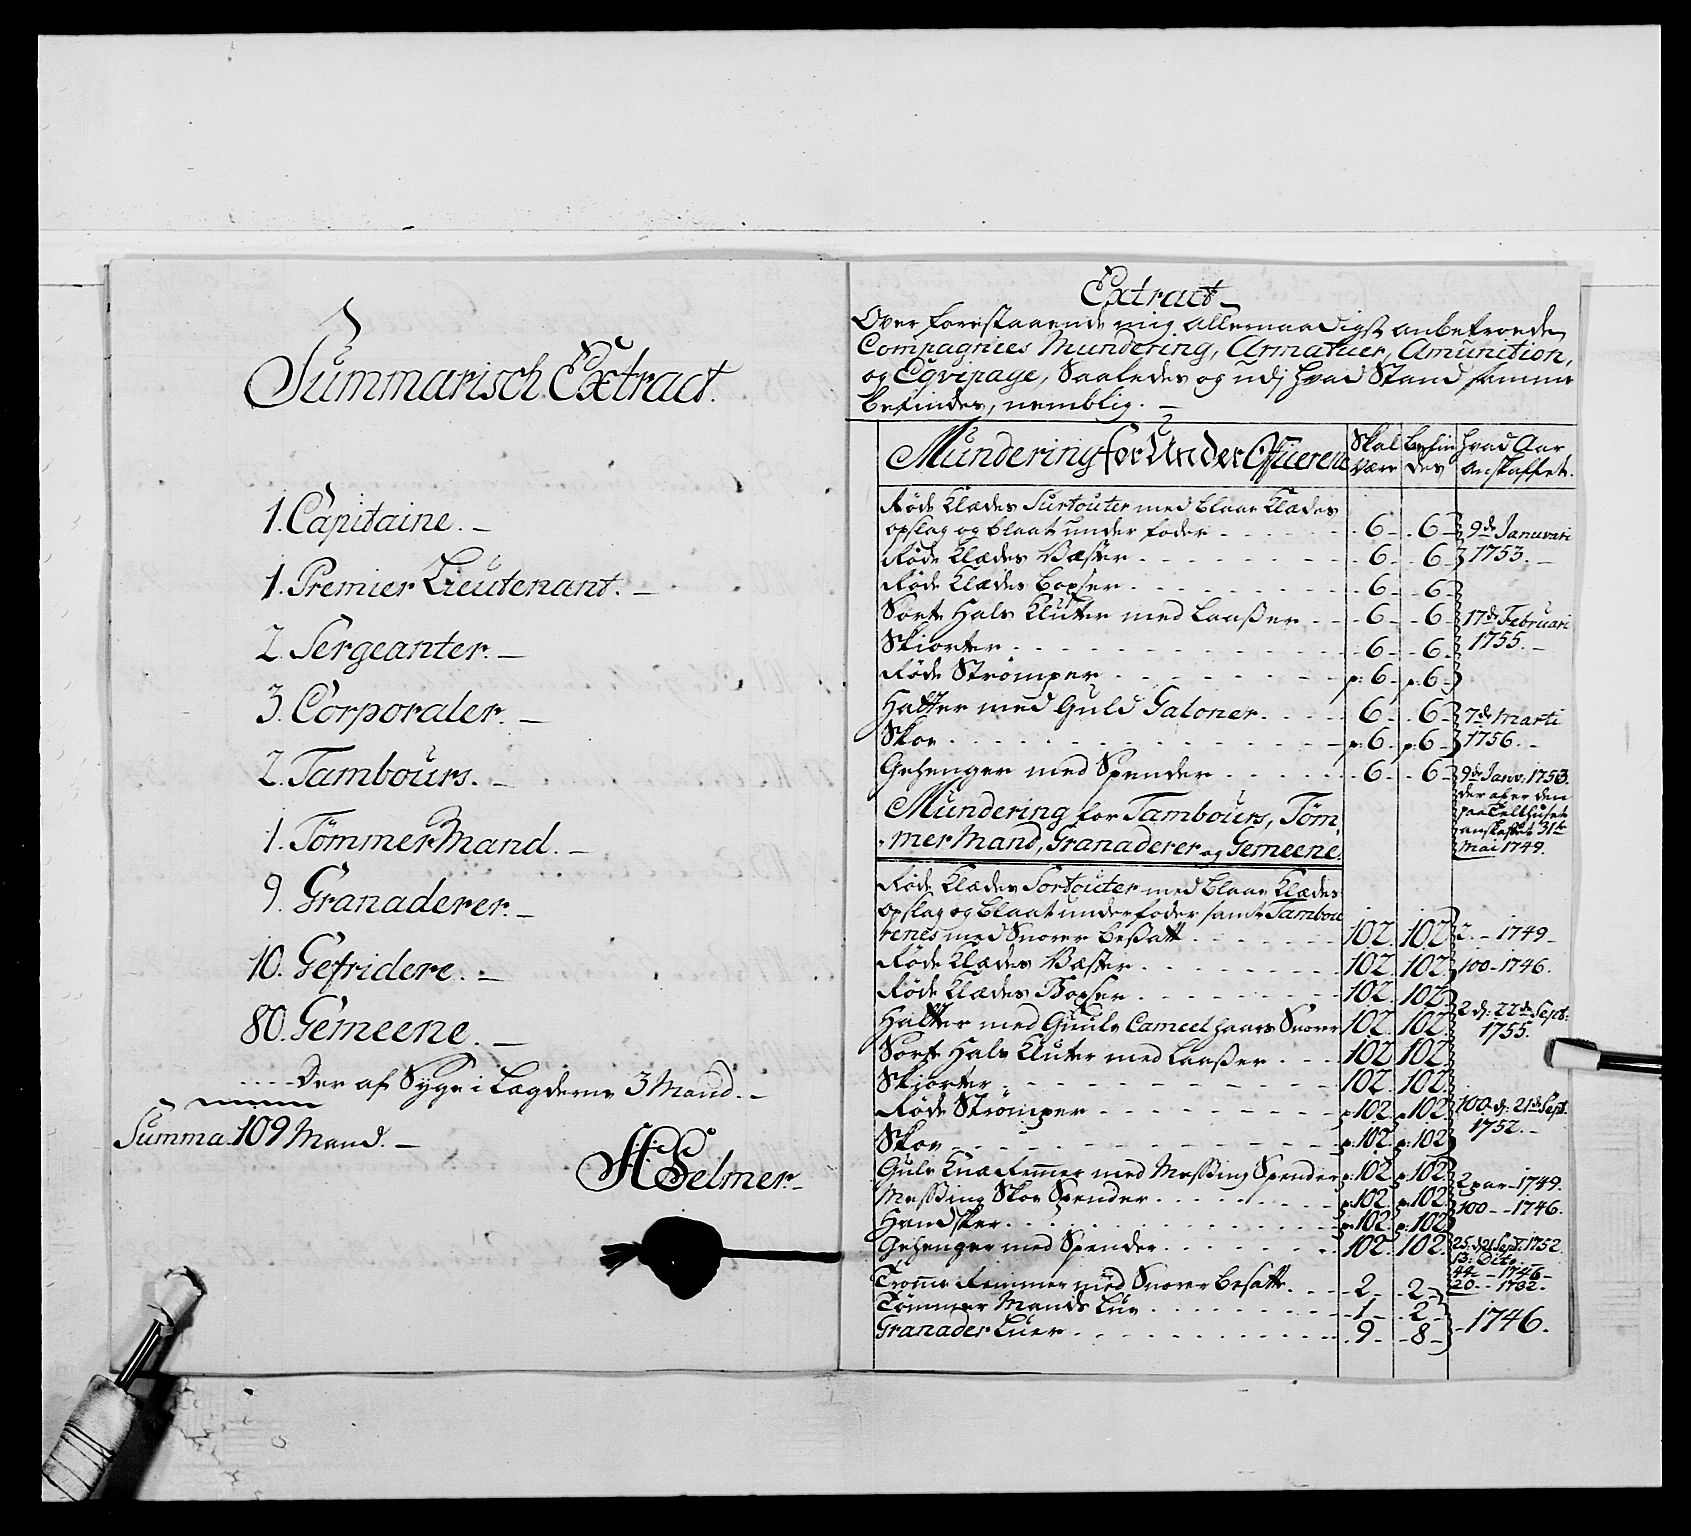 Summarisch Extract.
1. Capitaine. -
1. Premier Lieutenant. -
2. Sergeanter. -
3. Corporaler. -
2. Tambours. -
1. Tömmer Mand. -
9. Granaderer. -
10. Gefridere. -
80. Gemeene. -
Der af Syge i Lægderne 3 Mand. -
Summa 109 Mand. -
HSelmer -
Extract -
Over forestaaende mig allernaadigst anbetroede
Compagnies Mundering, Armatuer, Amunition,
og Eqvipage, Saaledes og udj hvad Stand samme
befindes, nemblig. -
Mundering for Under Officerene | Skal være | befindes | hvad Aar anskaffet.
Røde Klædes Surtouter med blaae Klædes
opslag og blaat under foder - 6 - 6 - 9de Januari
Røde Klædes Væster - 6 - 6 - 1753. -
Røde Klædes Boxser - 6 - 6 -
Sorte Hals Kluter med Laaßer - 6 - 6 - 17de Februari
Skiorter - 6 - 6 - 1755. -
Røde Strømper - p: 6 - p: 6 -
Hatter med Guld Galoner - 6 - 6 - 7de Marti
Skoe - p: 6 - p: 6 - 1756. -
Gehenger med Spender - 6 - 6 - 9de Janv: 1753.
der af er den
paa Telthuset
anskaffet 31te
Mai 1749.
Mundering for Tambours, Töm
mer Mand, Granaderer og Gemeene.
Røde Klædes Sortouter med blaae Klædes
opslag og blaat under foder samt Tambou
renes med Snorer besatt - 102. 102. 2. - 1749 -
Røde Klædes Væster - 102. 102. 100 - 1746.
Røde Klædes Boxser - 102. 102.
Hatter med Guule Cameelhaars Snorer 102. 102. 2 dj: 22de Sept: 1755.
Sorte Hals Kluter med Laaßer - 102. 102.
Skiorter - 102. 102.
Røde Strømper - p: 102. p: 102. 100. dj: 21de Sept:
Skoe - p: 102. p: 102 1752. -
Gule Knæ Remmer med Messing Spender p: 102. p: 102. 2 par - 1749.
Messing Skoe Spender - p: 102. p: 102. 100 - - 1746.
Handsker - p: 102. p: 102
Gehenger med Spender - 102. 102. 25. dj 21 Sept: 1752.
13: Dito
44 - - 1746 -
20 - - 1732 -
Tromme Remmer med Snorer besatt - 2 - 2 -
Tömmer Mands Lue - 1 - 2 -
Granader Luer - 9 - 8 - 1746.